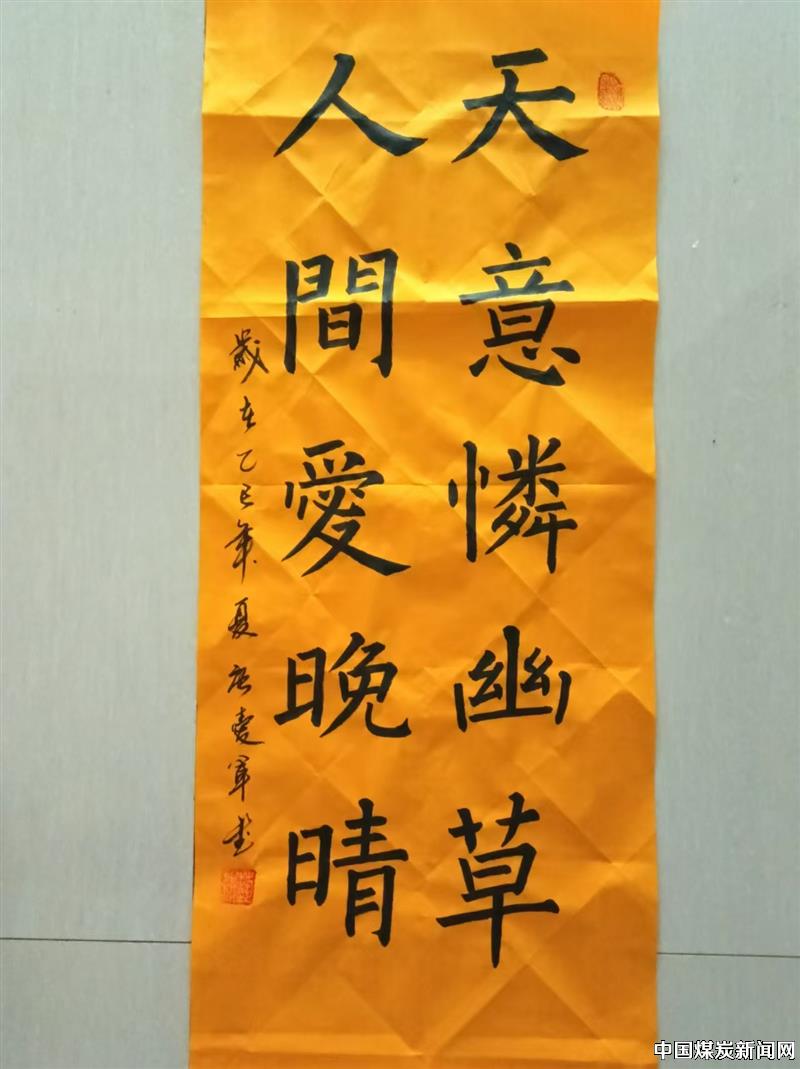 天意憐幽草
人間愛晚晴
歲在乙巳年夏唐愛軍書
中国煤炭新闻网